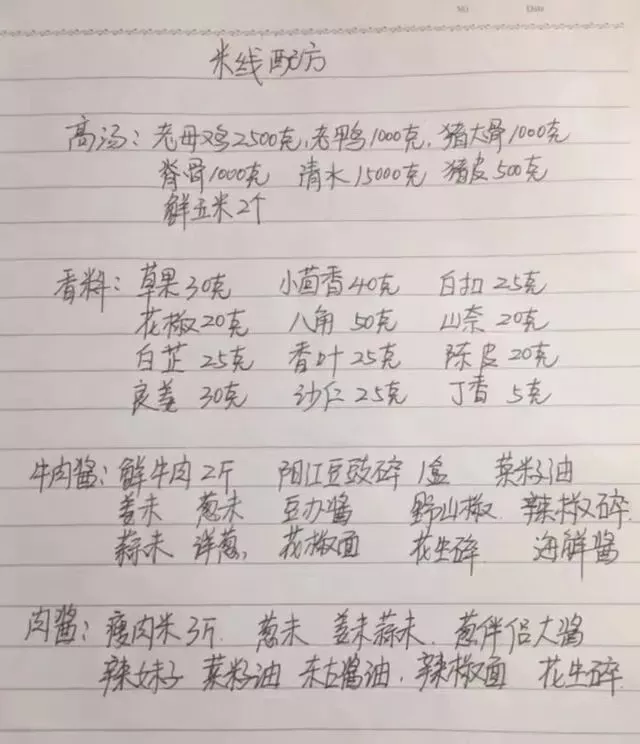 No Date
米线配方
高汤：老母鸡2500克，老鸭1000克，猪大骨1000克
脊骨1000克 清水15000克 猪皮500克
鲜玉米2个
香料：草果30克 小茴香40克 白扣25克
花椒20克 八角50克 山奈20克
白芷25克 香叶25克 陈皮20克
良姜30克 沙仁25克 丁香5克
牛肉酱：鲜牛肉2斤 阳江豆豉碎1盒 菜籽油
姜末 葱末 豆办酱 野山椒 辣椒碎
蒜末 洋葱 花椒面 花生碎 海鲜酱
肉酱：瘦肉米3斤 葱末 姜末蒜末 葱伴侣大酱
辣妹子 菜籽油 东古酱油 辣椒面 花生碎